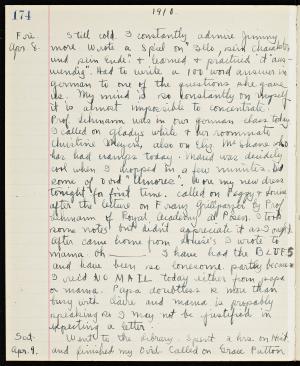 174
1910.
Fri. Still cold. I constantly admire Jimmy
Apr. 8. more. Wrote a Spiel on "Tell, sein Charakter
und sein Ende" & learned & practised it "aus-
wendig". Had to write a 100 word answer in
german to one of the questions she gave
us. My mind is so constantly on myself
it is almost impossible to concentrate.
Prof. Lehmann was in our german class today.
I called on Gladys White & her roommate
Christine Meyers, also on Eliz. who
has had cramps today. was decidedly
cool when I dropped in a few minutes. Did
some of Ovid "Amores". Wore my new dress
tonight called on Peggy & Louise
after the lecture on Franz Grillparzer by Prof.
Lehmann of Royal Academy at Posen. I took
some notes but didn't appreciate it as I ought.
After came home from Louise's I wrote to
mama oh — I have had the BLUES
and have been so lonesome. Partly because
I rec'd NO MAIL today either from papa
or mama. Papa doubtless is more than
busy with Claire and mama is probably
speaking so I may not be justified in
expecting a letter.
Sat. Went to the library. Spent 2 hrs. on Hist.
Apr. 9. and finished my Ovid. Called on Grace Patton